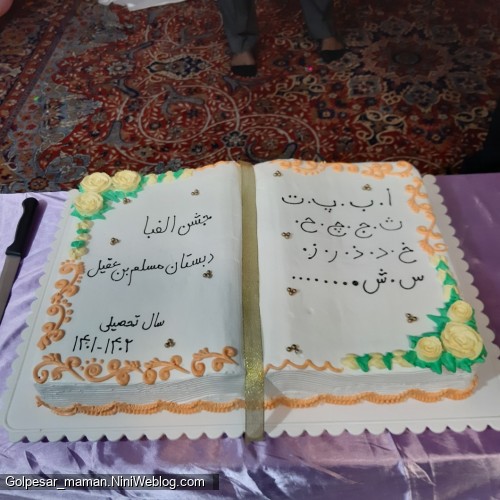 جشن الفبا
دبستان مسلم بن عقیل
سال تحصیلی
۱۴۰۱-۱۴۰۲
ا.ب.پ.ت
ث.ج.چ.ح.
خ.د.ذ.ر.ز.
س.ش.........
Golpesar_maman.NiniWeblog.com